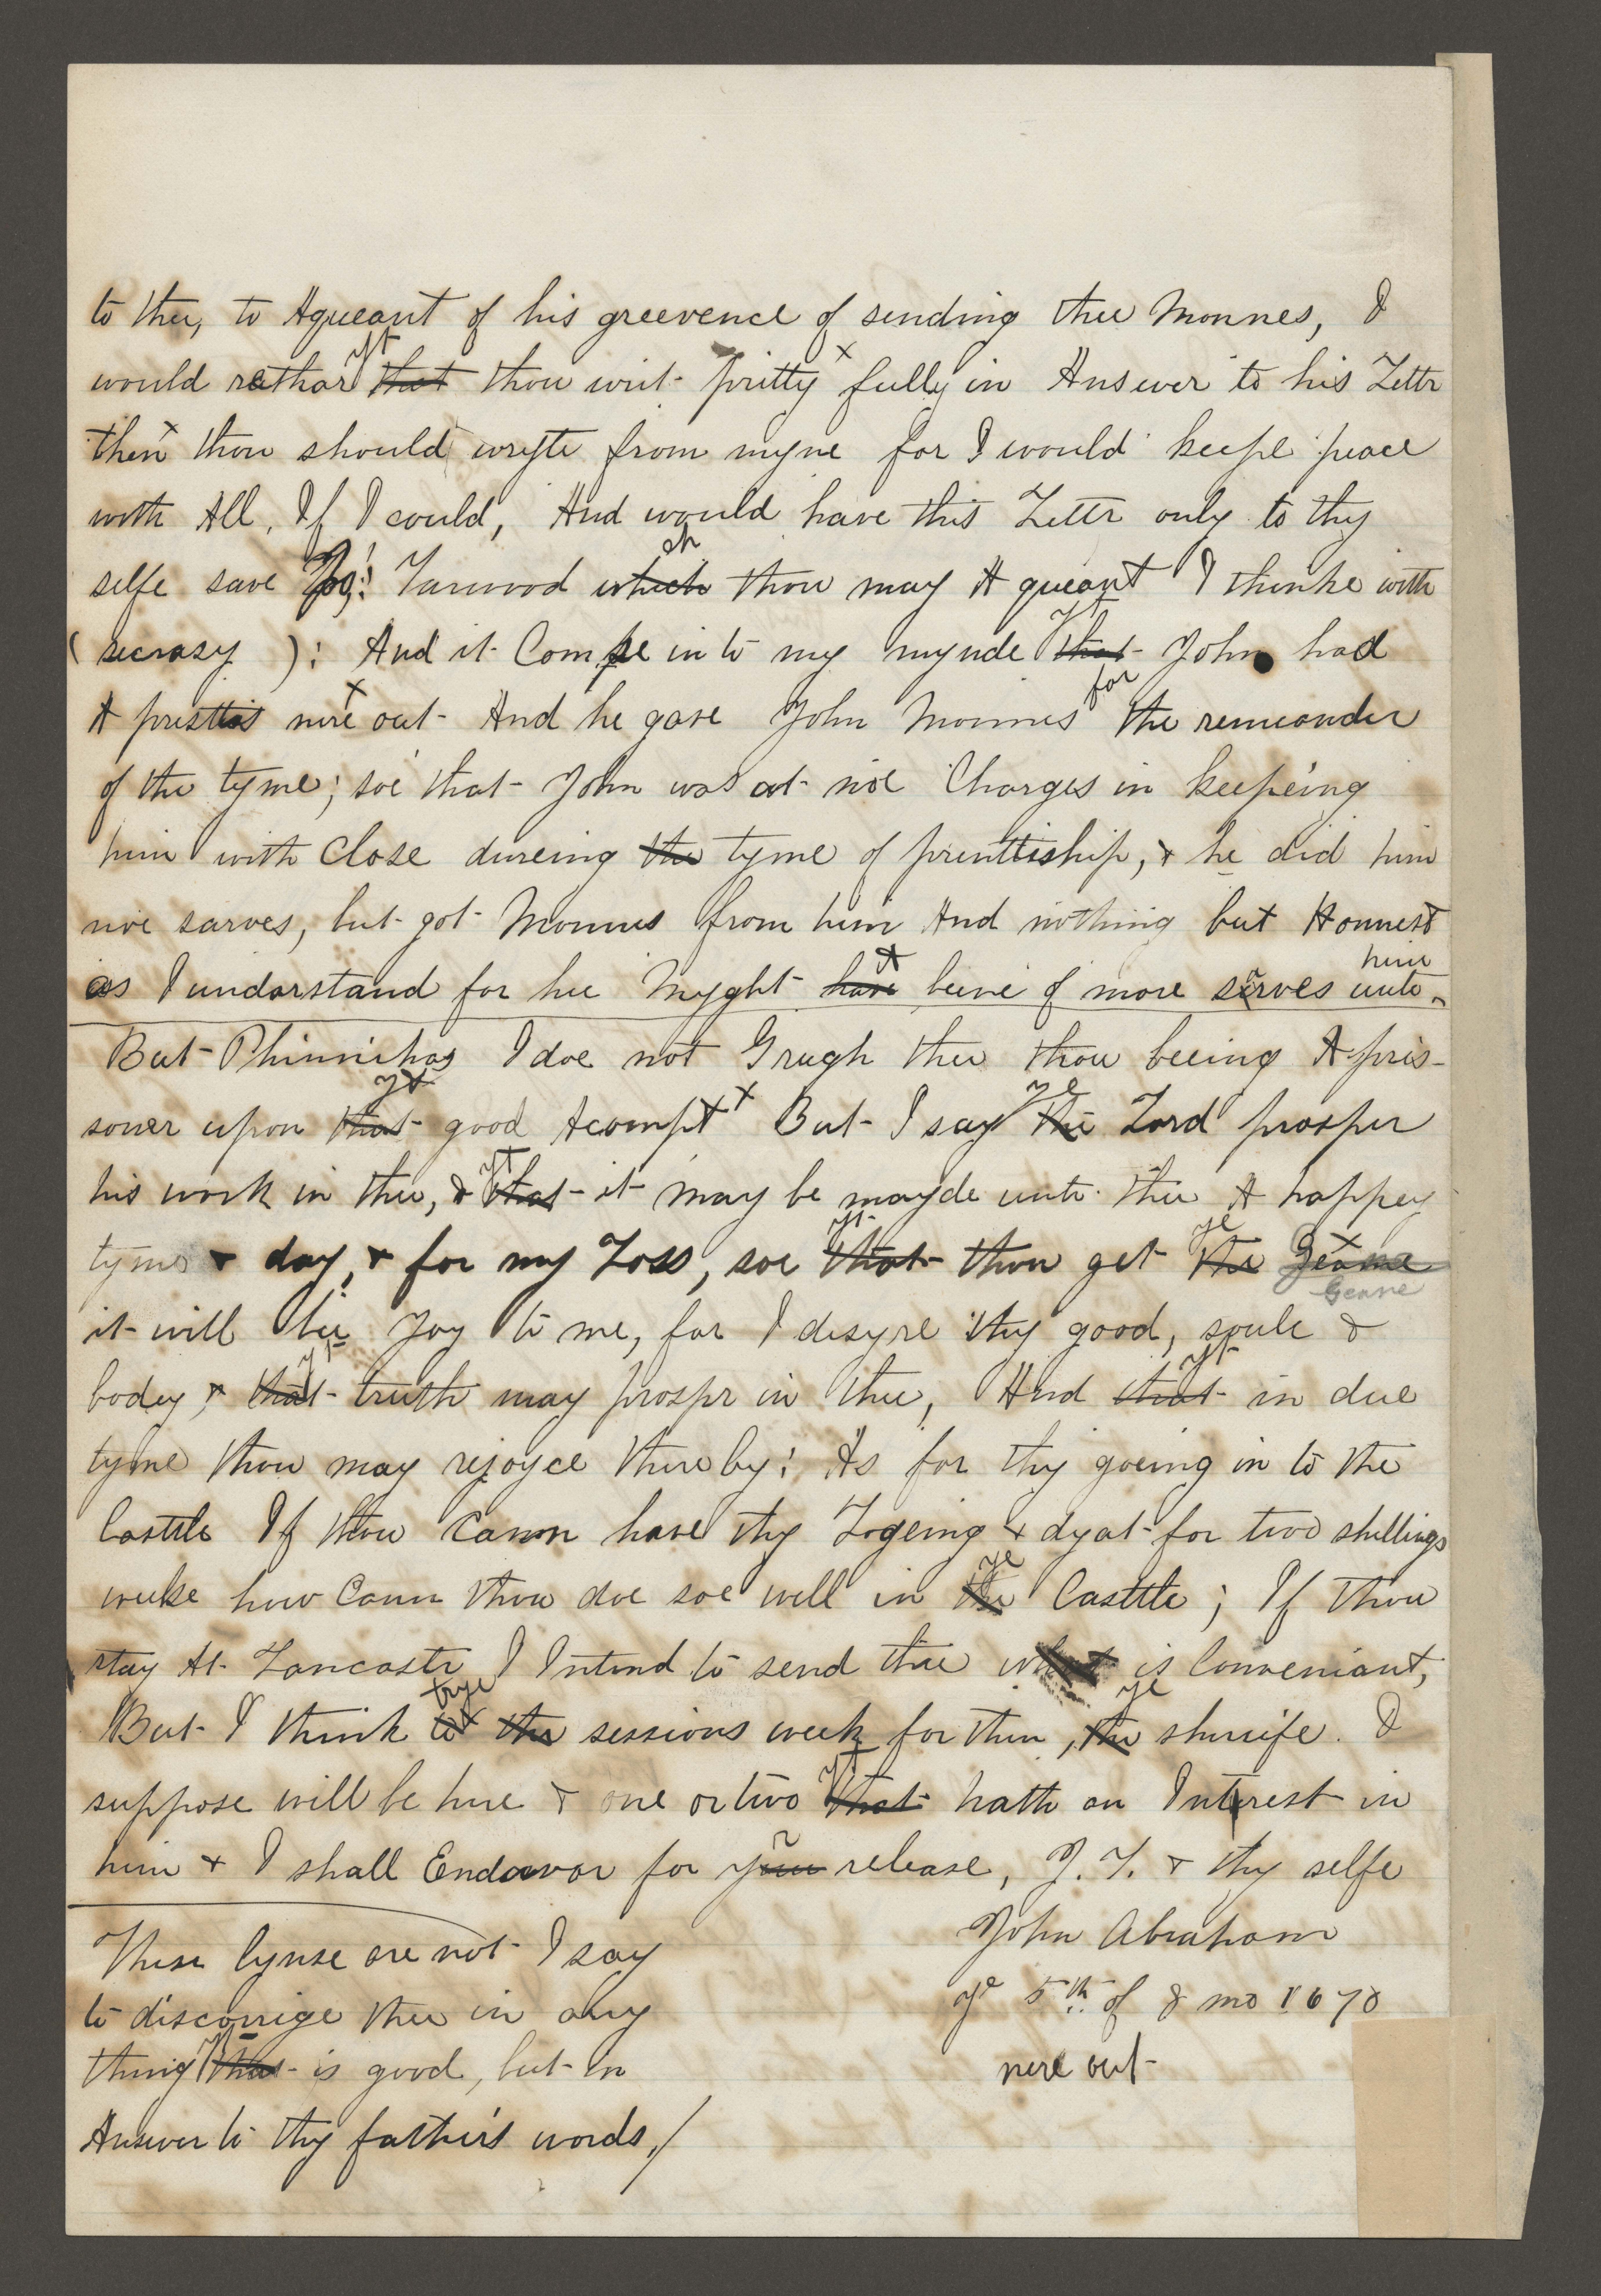 to thee, to Aqueant of his greevence of sending thee Monnes, I
would rathar yt that thou writ pritty x fully in Answer to his Lettr
then x thou should wryte from myne for I would keepe peace
with All, If I could, And would have this Lettr only to thy
selfe save Yarwood ch which thou may A queant I thinke with
( secrasy ): And it Come into my mynde yt that John had
A pristtis nire x out And he gave John Monnes for the remeander
of the tyme; soe that John was at noe Charges in keepeing
him with Close dureing the tyme of prenttiship, & he did him
noe sarves, but got Monnes from him And nothing but Honnest
as I undarstand for hee Myght a have beene of more serves unto him
But Phinnihas I doe not Grugh thee thou beeing A pris-
soner upon yt that good Acompt x But I say ye the Lord prosper
his work in thee, & yt that it may be mayde unto thee A happey
tyme & day, & for my Loss, soe yt that thou get ye the x Geane
it will bee Joy to me, for I desyre thy good, soule &
bodey & yt that truth may prospr in thee, And yt that in due
tyme thou may rejoyce thereby: As for thy goeing in to the
Casttle If thou Cann have thy Logeing & dyat for two shillings
weeke how Cann thou doe soe well in ye the Casttle; If thou
stay At Lancastr I Intend to send thee what is Conveniant,
But I think trye the sessions week for then, ye the shreife. I
suppose will be here & one or two yt that hath an Interest in
him & I shall Endavor for your r release, J. Y. & thy selfe
John Abraham
ye 5th of 8 mo 1670
nere out
These lynse are not I say
to discorrige thee in any
thing yt that is good, but in
Answer to thy father's words,/